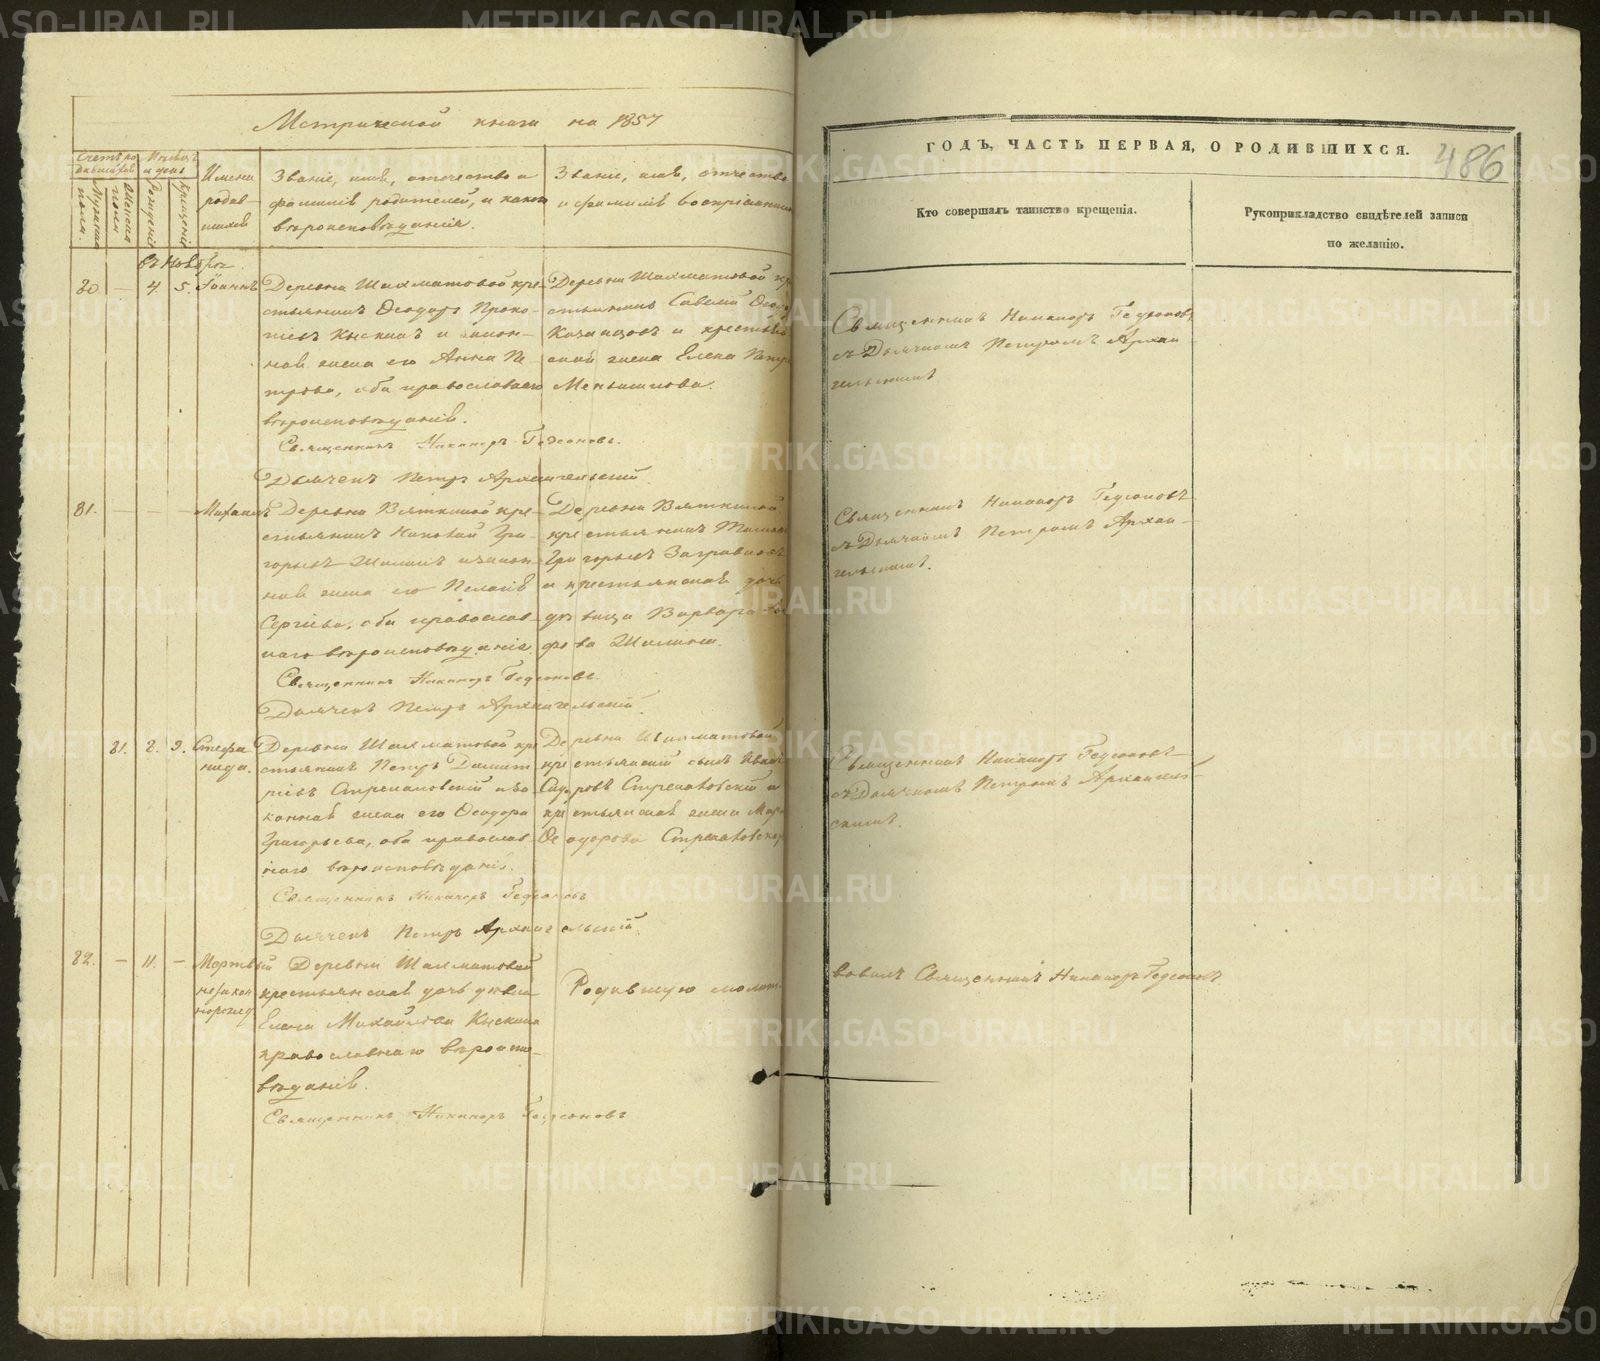 Метрической книги на 1857
ГОДЪ, ЧАСТЬ ПЕРВАЯ, О РОДИВШИХСЯ.
486
Счетъ ро
Мѣсяцъ
и день
Мужеска
пола.
Женска
пола
Рожденія
Крещенія
Имена
родив-
шихся
Званіе, имя, отчество и
фамилія родителей, и какого
вѣроисповѣданія.
Званіе, имя, отчество
и фамилія воспріемник
Кто совершалъ таинство крещенія.
Рукоприкладство свидѣтелей записи
по желанію.
въ Ноябрѣ
80. — 4. 5. Іоаннъ
Деревни Шахматовой кре-
стьянинъ Ѳеодоръ Проко-
піевъ Кыскинъ и закон-
ная жена его Анна Пе-
трова, оба православнаго
вѣроисповѣданія.
Священникъ Никаноръ Гедеоновъ.
Дьячекъ Петръ Архангельскій.
Деревни Шахматовой
стьянинъ Савелій Ѳеодо
Казанцовъ и крестьян
ская жена Елена Петр
Меньшикова.
Священникъ Никаноръ Гедеоновъ
съ Дьячкомъ Петромъ Архан-
гельскимъ
81. — — — Михаилъ
Деревни Вяткиной кре-
стьянинъ Григорьевъ Шилинъ и закон-
ная жена его Пелагія
Сергіева, оба православ-
наго вѣроисповѣданія.
Священникъ Никаноръ Гедеоновъ.
Дьячекъ Петръ Архангельскій.
Деревни Вяткиной
крестьянинъ
Григорьевъ
и крестьянская дочь
дѣвица Варвара
Шилина.
Священникъ Никаноръ Гедеоновъ
съ Дьячкомъ Петромъ Архан-
гельскимъ.
81. 8. 9. Стефа
нида.
Деревни Шахматовой кре
стьянинъ Петръ Димит
ріевъ Стрекаловскій и за
конная жена его Ѳеодора
Григорьева, оба православ
наго вѣроисповѣданія.
Священникъ Никаноръ Гедеоновъ
Дьячекъ Петръ Архангельскій.
Деревни Шахматовой
крестьянскій сынъ Иван
Сидоровъ Стрекаловскій и
крестьянская жена Мар
Ѳеодорова Стрекаловская
Священникъ Никаноръ Гедеоновъ
съ Дьячкомъ Петромъ Архангель
скимъ.
82. — 11. — Мертвый
незакон
норожд
Деревни Шахматовой
крестьянская дочь дѣвица
Елена Михайлова Кыскина
православнаго вѣроиспо-
вѣданія.
Священникъ Никаноръ Гедеоновъ
Родившую молит-
вовалъ Священникъ Никаноръ Гедеоновъ.
METRIKI.GASO-URAL.RU